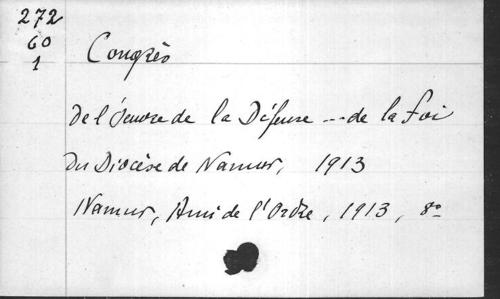 272
60
1
Congrès
De l'Oeuvre de la Défense --- de la Foi
Du Diocèse de Namur, 1913
Namur, Ami de l'Ordre, 1913, 8º